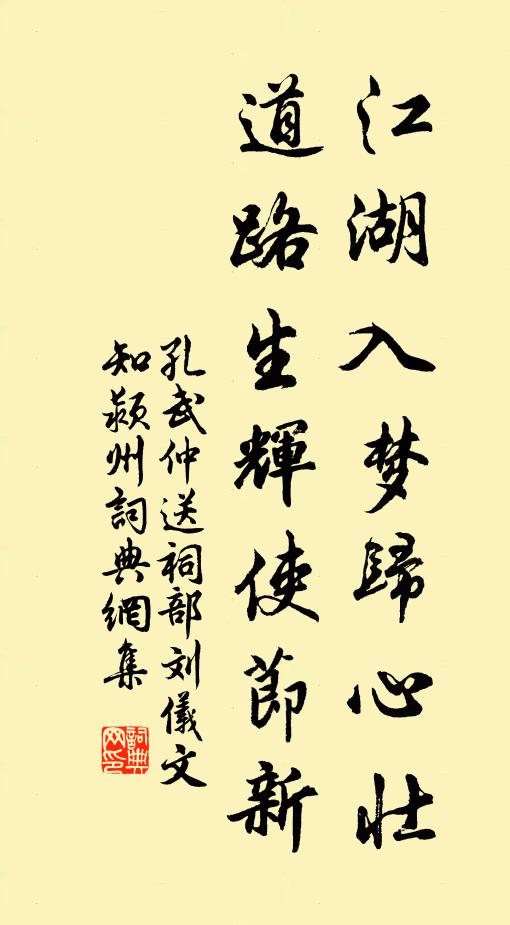 江湖入梦歸心壮
道路生輝使節新
孔武仲送祠部刘儀文
知颍州詞典網集
詞典网印